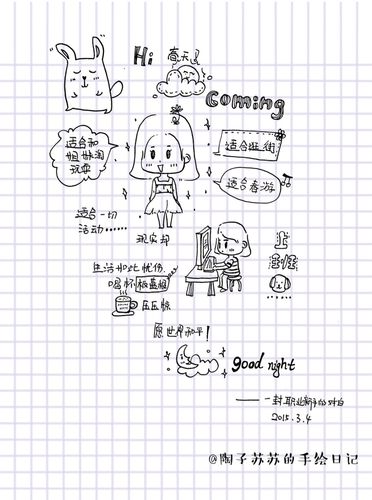 Hi 春天
coming
适合和
姐妹淘
玩耍
适合逛街
适合春游
适合一切
活动……
现实却
上
班
生活如此忧伤
喝杯板蓝根
压压惊
愿世界和平!
good night
2015.3.4
@陶子苏苏的手绘日记